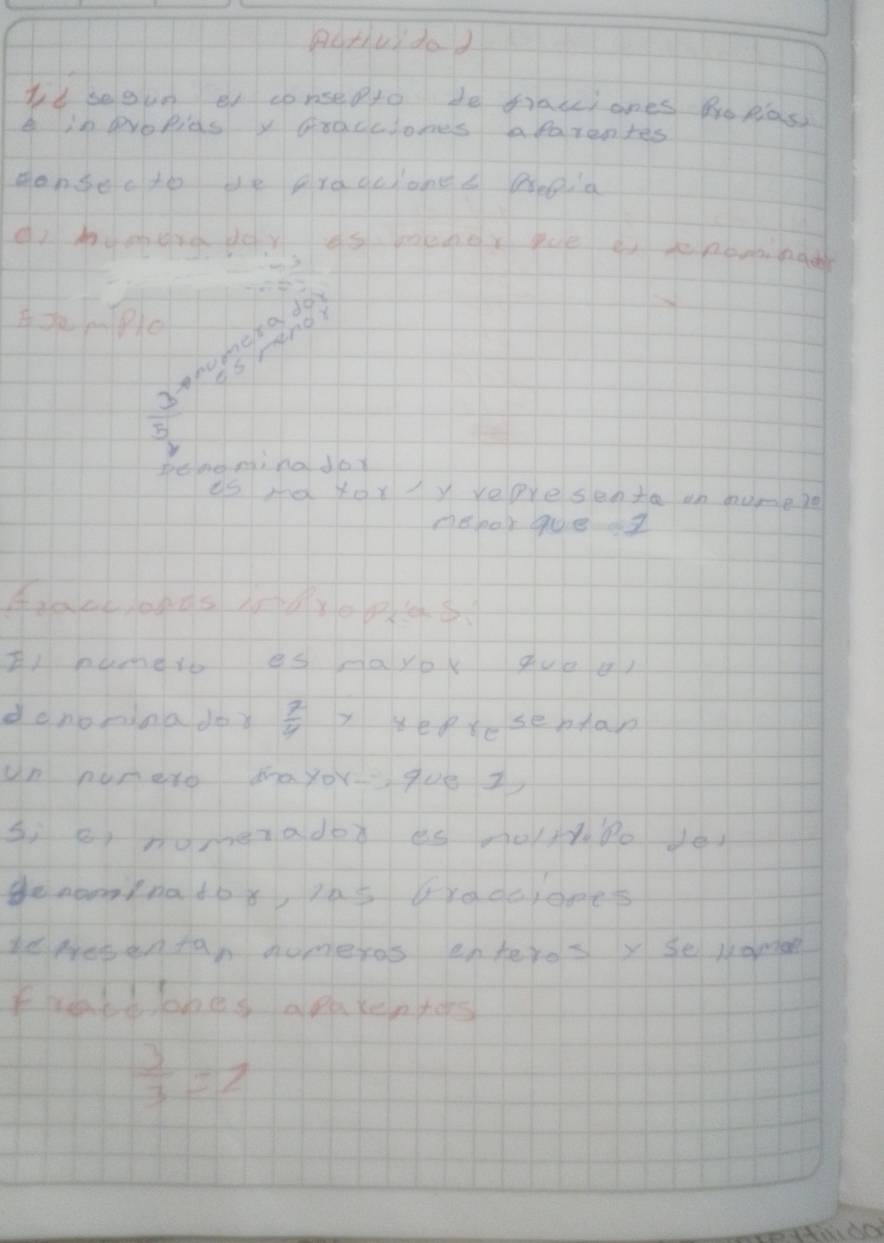 Actividad
segun el consepto de fracciones Propias
e inpropias y fracciones aparentes
consecto de fracciones Propia
el numerador es menor que el denominador
Exemplo
numerador
es menor
3
5
Denominador
es mayor y representa un numero
menor que 1
Fracciones inpropias:
El numero es mayor que el
denominador 7/4 y representan
un numero mayor que 1,
si el numerador es multipo del
denominador, las fracciones
representan numeros enteros y se llaman
Fracciones aparentes
3/3 = 1